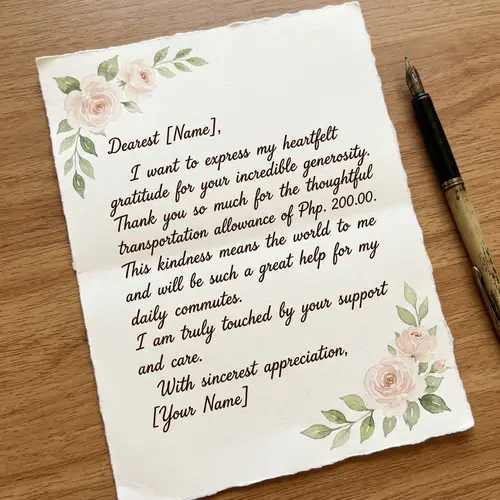 Dearest [Name],
I want to express my heartfelt
gratitude for your incredible generosity.
Thank you so much for the thoughtful
transportation allowance of Php. 200.00.
This kindness means the world to me
and will be such a great help for my
daily commutes.
I am truly touched by your support
and care.
With sincerest appreciation,
[Your Name]